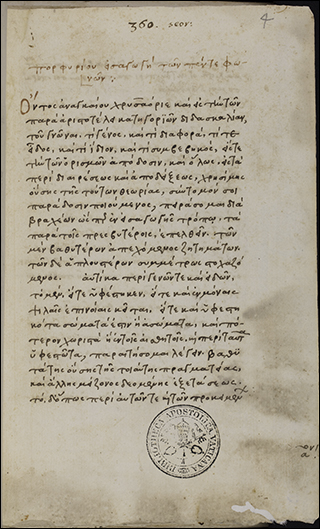 360. 4
πορφυρίου εἰσαγωγὴ τῶν πέντε φω
νῶν:
Ὄντος ἀναγκαίου χρυσαόριε καὶ εἰς τὴν τῶν
παρὰ ἀριστοτέλει κατηγοριῶν διδασκαλίαν,
τοῦ γνῶναι τί γένος, καὶ τί διαφορά, τί τε
εἶδος, καὶ τί ἴδιον, καὶ τί συμβεβηκός, εἴς τε
τὴν τῶν ὁρισμῶν ἀπόδοσιν, καὶ ὅλως, εἰς τὰ
περὶ διαιρέσεως καὶ ἀποδείξεως, χρησίμης
οὔσης τῆς τούτων θεωρίας, σύντομόν σοι
παράδοσιν ποιούμενος, πειράσομαι διὰ
βραχέων ὡς ἐν εἰσαγωγῆς τρόπῳ, τὰ
παρὰ τοῖς πρεσβυτέροις, ἐπελθεῖν. τῶν
μὲν βαθυτέρων ἀπεχόμενος ζητημάτων.
τῶν δὲ ἁπλουστέρων συμμέτρως στοχαζό
μενος. αὐτίκα περὶ γενῶν τε καὶ εἰδῶν.
τὸ μὲν, εἴτε ὑφέστηκεν. εἴτε καὶ ἐν μόναις
ψιλαῖς ἐπινοίαις κεῖται. εἴτε καὶ ὑφεστη
κότα σώματά ἐστιν ἢ ἀσώματα, καὶ πό
τερον χωριστὰ ἢ ἐν τοῖς αἰσθητοῖς, καὶ περὶ ταῦτα
ὑφεστῶτα, παραιτήσομαι λέγειν. βαθυ
τάτης οὔσης τῆς τοιαύτης πραγματείας.
καὶ ἄλλης μείζονος δεομένης ἐξετάσεως.
τὸ, δ' ὅπως περὶ αὐτῶν τε καὶ τῶν προκειμένων
BIBLIOTHECA APOSTOLICA VATICANA